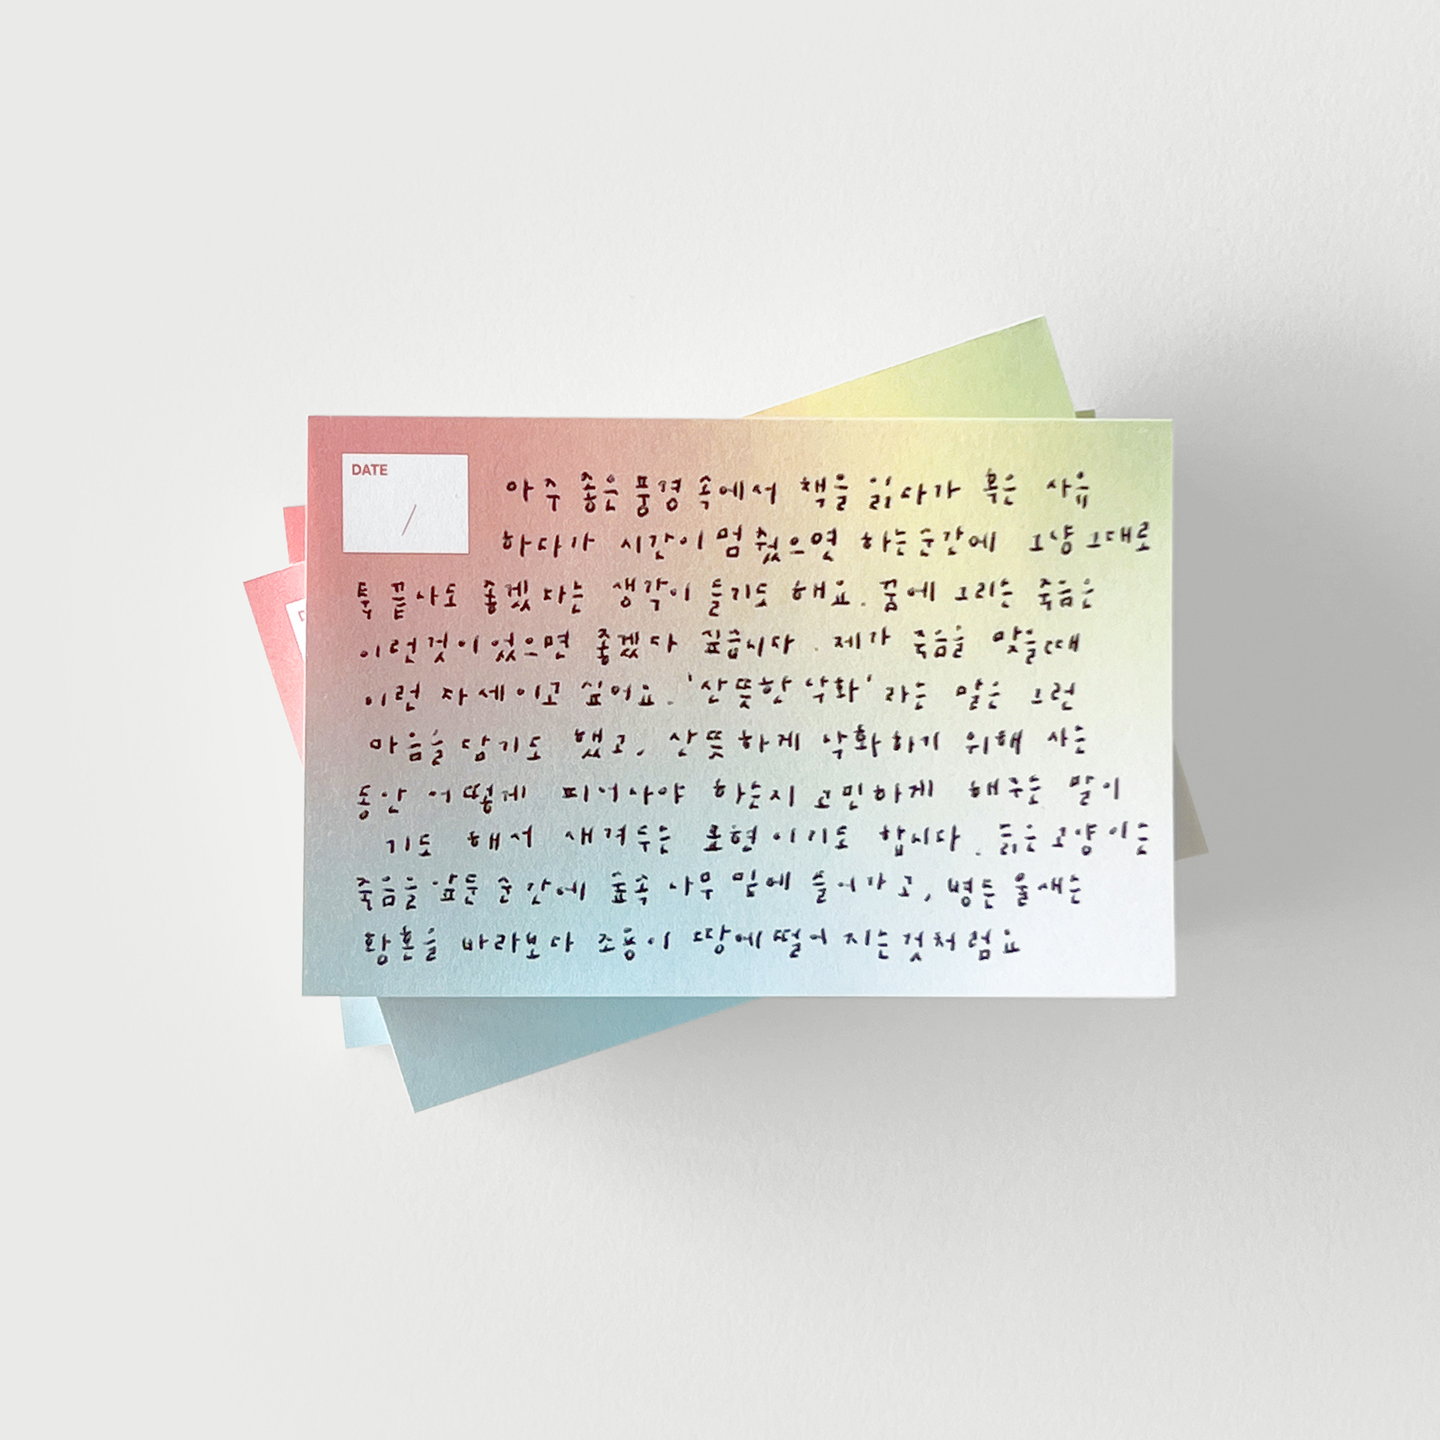 DATE
/
아주 좋은 풍경 속에서 책을 읽다가 혹은 사유
하다가 시간이 멈췄으면 하는 순간에 그냥 그대로
툭 끝나도 좋겠다는 생각이 들기도 해요. 꿈에 그리는 죽음은
이런것이었으면 좋겠다 싶습니다. 제가 죽음을 맞을때
이런 자세이고 싶어요. '산뜻한 낙화' 라는 말은 그런
마음을 담기도 했고, 산뜻하게 낙화하기 위해 사는
동안 어떻게 피어나야 하는지 고민하게 해주는 말이
기도 해서 새겨두는 표현이기도 합시다. 늙은 고양이는
죽음을 앞둔 순간에 숲속 나무 밑에 들어가고, 병든 울새는
황혼을 바라보다 조용히 땅에 떨어지는것처럼요